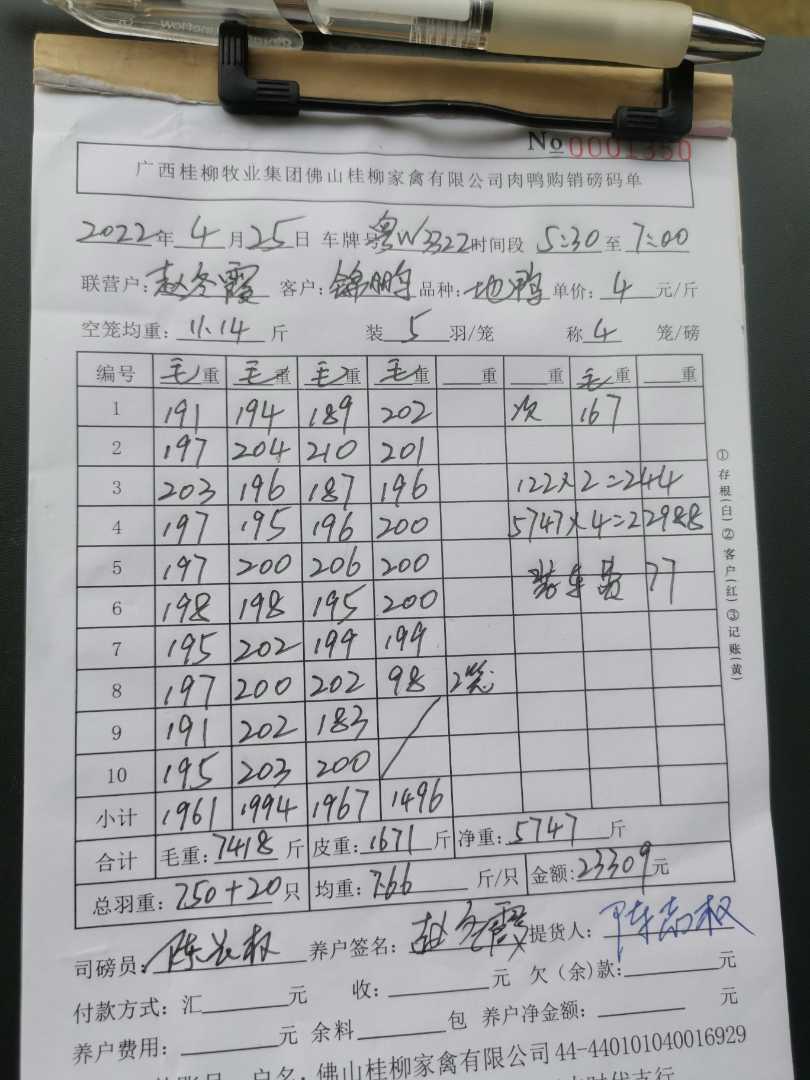 No 0001350
广西桂柳牧业集团佛山桂柳家禽有限公司肉鸭购销磅码单
2022年4月25日 车牌号粤W3322时间段 5:30至7:00
联营户:赵冬霞 客户:锦鹏 品种:地鸭 单价:4元/斤
空笼均重:11.14斤 装5羽/笼 称4笼/磅
编号 毛重 毛重 毛重 毛重 重 重 毛重 重
1 191 194 189 202 次 167
2 197 204 210 201
3 203 196 187 196 122×2=244
4 197 195 196 200 5747×4=22988
5 197 200 206 200 装车员 77
6 198 198 195 200
7 195 202 199 199
8 197 200 202 98 2笼
9 191 202 183
10 195 203 200
小计 1961 1994 1967 1496
合计 毛重:7418斤 皮重:1671斤 净重:5747斤
总羽重:750+20只 均重:7.66斤/只 金额:23309元
司磅员: 养户签名:赵冬霞 提货人:
付款方式:汇 元 收: 元 欠(余)款: 元
养户费用: 元 余料 包 养户净金额: 元
户名:佛山桂柳家禽有限公司 44-440101040016929
时代支行
①存根(白)②客户(红)③记账(黄)